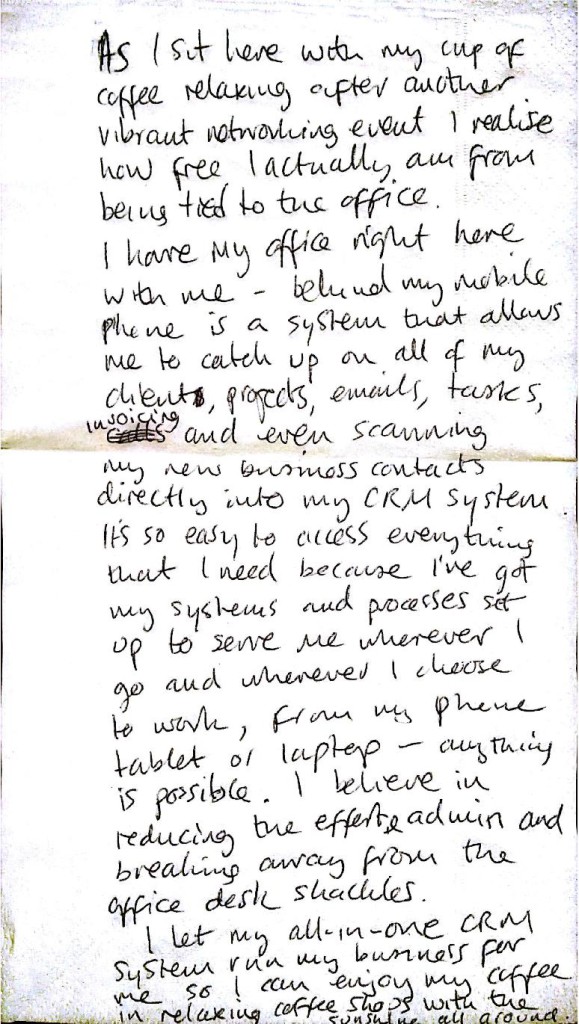 As I sit here with my cup of
coffee relaxing after another
vibrant networking event I realise
how free I actually am from
being tied to the office.
I have my office right here
with me – behind my mobile
phone is a system that allows
me to catch up on all of my
clients, projects, emails, tasks,
invoicing and even scanning
my new business contacts
directly into my CRM system
It's so easy to access everything
that I need because I've got
my systems and processes set
up to serve me wherever I
go and wherever I choose
to work, from my phone
tablet or laptop – anything
is possible. I believe in
reducing the effort & admin and
breaking away from the
office desk shackles.
I let my all-in-one CRM
system run my business for
me so I can enjoy my coffee
in relaxing coffee shops with the
sunshine all around.